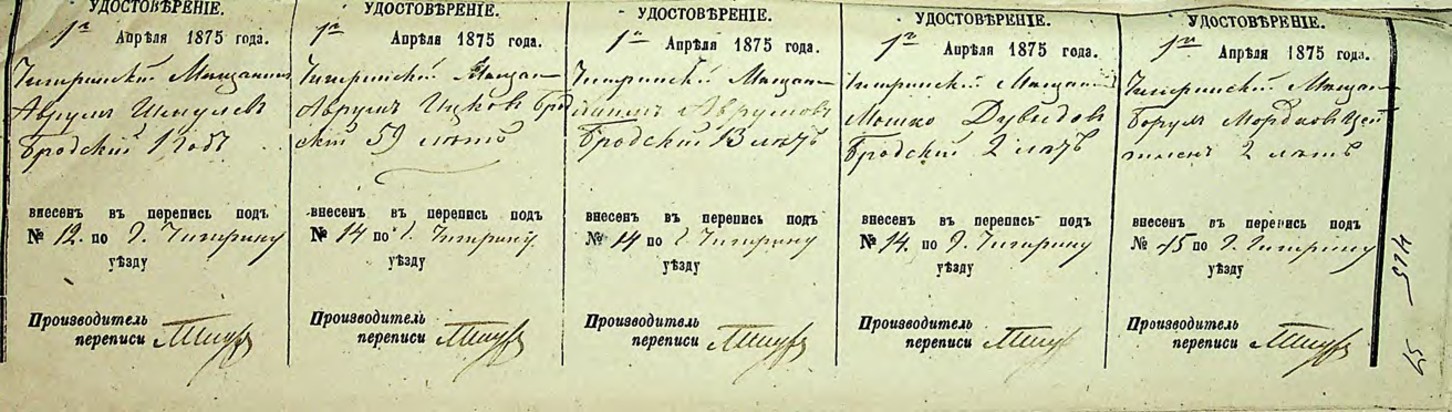 УДОСТОВѢРЕНІЕ.
1го Апрѣля 1875 года.
Чигиринскій Мѣщанинъ
Аврумъ
Бродскій 1 годъ
внесенъ въ перепись подъ
№ 12. по г. Чигирину
уѣзду
Производитель
переписи
УДОСТОВѢРЕНІЕ.
1го Апрѣля 1875 года.
Чигиринскій Мѣщан
Аврумъ Ицков Брод
скій 59 лѣтъ
внесенъ въ перепись подъ
№ 14 по г. Чигирину
уѣзду
Производитель
переписи
УДОСТОВѢРЕНІЕ.
1го Апрѣля 1875 года.
Чигиринскій Мѣщан
Аврумовъ
Бродскій 13 лѣтъ
внесенъ въ перепись подъ
№ 14 по г. Чигирину
уѣзду
Производитель
переписи
УДОСТОВѢРЕНІЕ.
1го Апрѣля 1875 года.
Чигиринскій Мѣщанин
Мошко Дувидов
Бродскій 2 лѣтъ
внесенъ въ перепись подъ
№ 14. по г. Чигирину
уѣзду
Производитель
переписи
УДОСТОВѢРЕНІЕ.
1го Апрѣля 1875 года.
Чигиринскій Мѣщан
Борух Мордков Цей
тлинъ 2 лѣтъ
внесенъ въ перепись подъ
№ 15 по г. Чигирину
уѣзду
Производитель
переписи
15